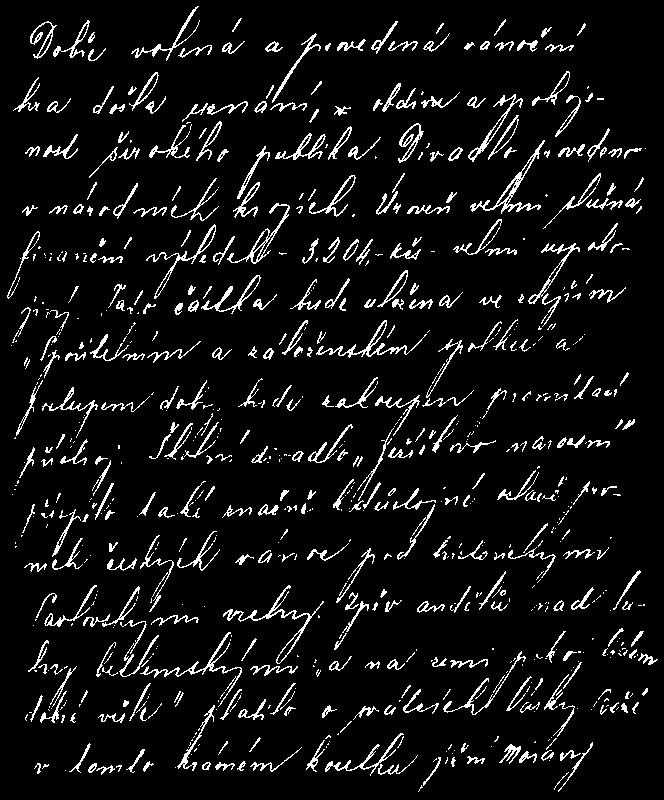 Dobře volená a provedená vánoční
hra došla uznání, obdivu a spokoje-
nost širokého publika. Divadlo provedeno
v národních krojích. Úroveň velmi slušná,
finanční výsledek - 3.204,- kčs - velmi uspoko-
jivý. Tato částka bude uložena ve zdejším
„Spořitelním a záloženském spolku" a
postupem doby bude zakoupen promítací
přístroj. Školní divadlo „Ježíškovo narození"
přispělo také značně k důstojné oslavě prv-
ních českých vánoc pod historickými
Pavlovskými vrchy. Zpěv andělů nad lu-
hy betlemskými „a na zemi pokoj lidem
dobré vůle" platilo o svátcích lásky
v tomto krásném koutku jižní Moravy